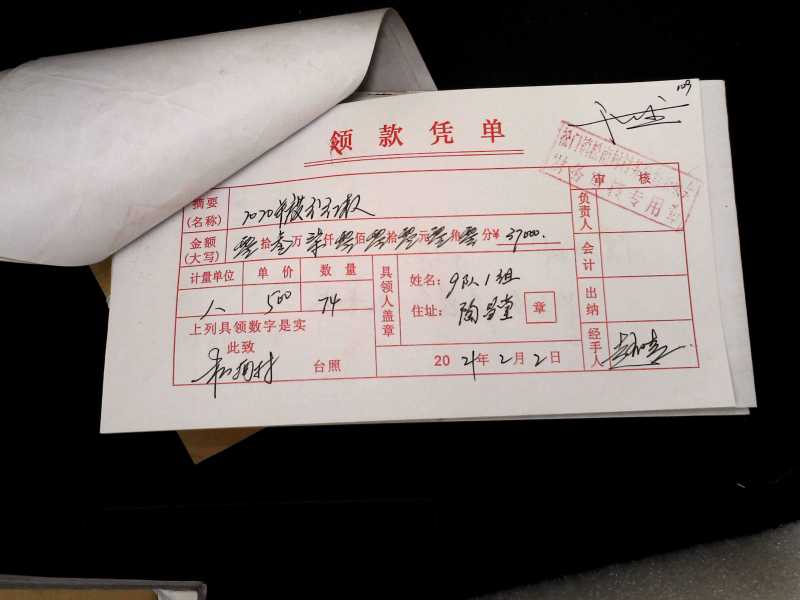 109
领款凭单
审核
摘要
(名称)
2020年度分红款
金额
(大写)
零拾叁万柒仟零佰零拾零元零角零分¥37000.
计量单位 单价 数量
人 500 74
上列具领数字是实
此致
台照
具领人盖章
姓名: 9队1组
住址: 陶
章
2021年2月2日
负责人
会计
出纳
经手人